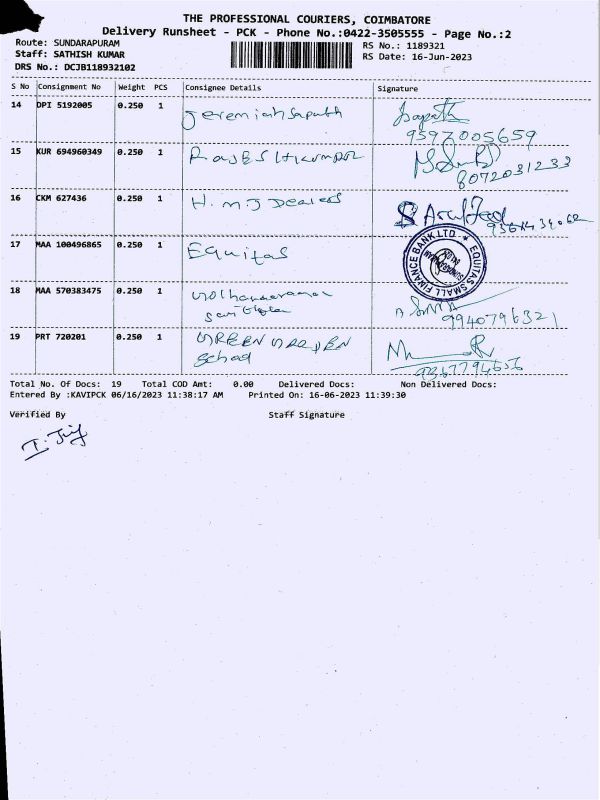 THE PROFESSIONAL COURIERS, COIMBATORE
Delivery Runsheet - PCK - Phone No.:0422-3505555 - Page No.:2
Route: SUNDARAPURAM
RS No.: 1189321
Staff: SATHISH KUMAR
RS Date: 16-Jun-2023
DRS No.: DCJB118932102
S No Consignment No Weight PCS Consignee Details Signature
14 DPI 5192005 0.250 1 Jeremiah Sapath
9597005659
15 KUR 694960349 0.250 1
8072031233
16 CKM 627436 0.250 1 H.M.J Dealers
17 MAA 100496865 0.250 1 Equitas
EQUITAS SMALL FINANCE BANK LTD
18 MAA 570383475 0.250 1
9940796321
19 PRT 720201 0.250 1 GREEN GARDEN
School
9367794656
Total No. Of Docs: 19 Total COD Amt: 0.00 Delivered Docs: Non Delivered Docs:
Entered By :KAVIPCK 06/16/2023 11:38:17 AM Printed On: 16-06-2023 11:39:30
Verified By Staff Signature